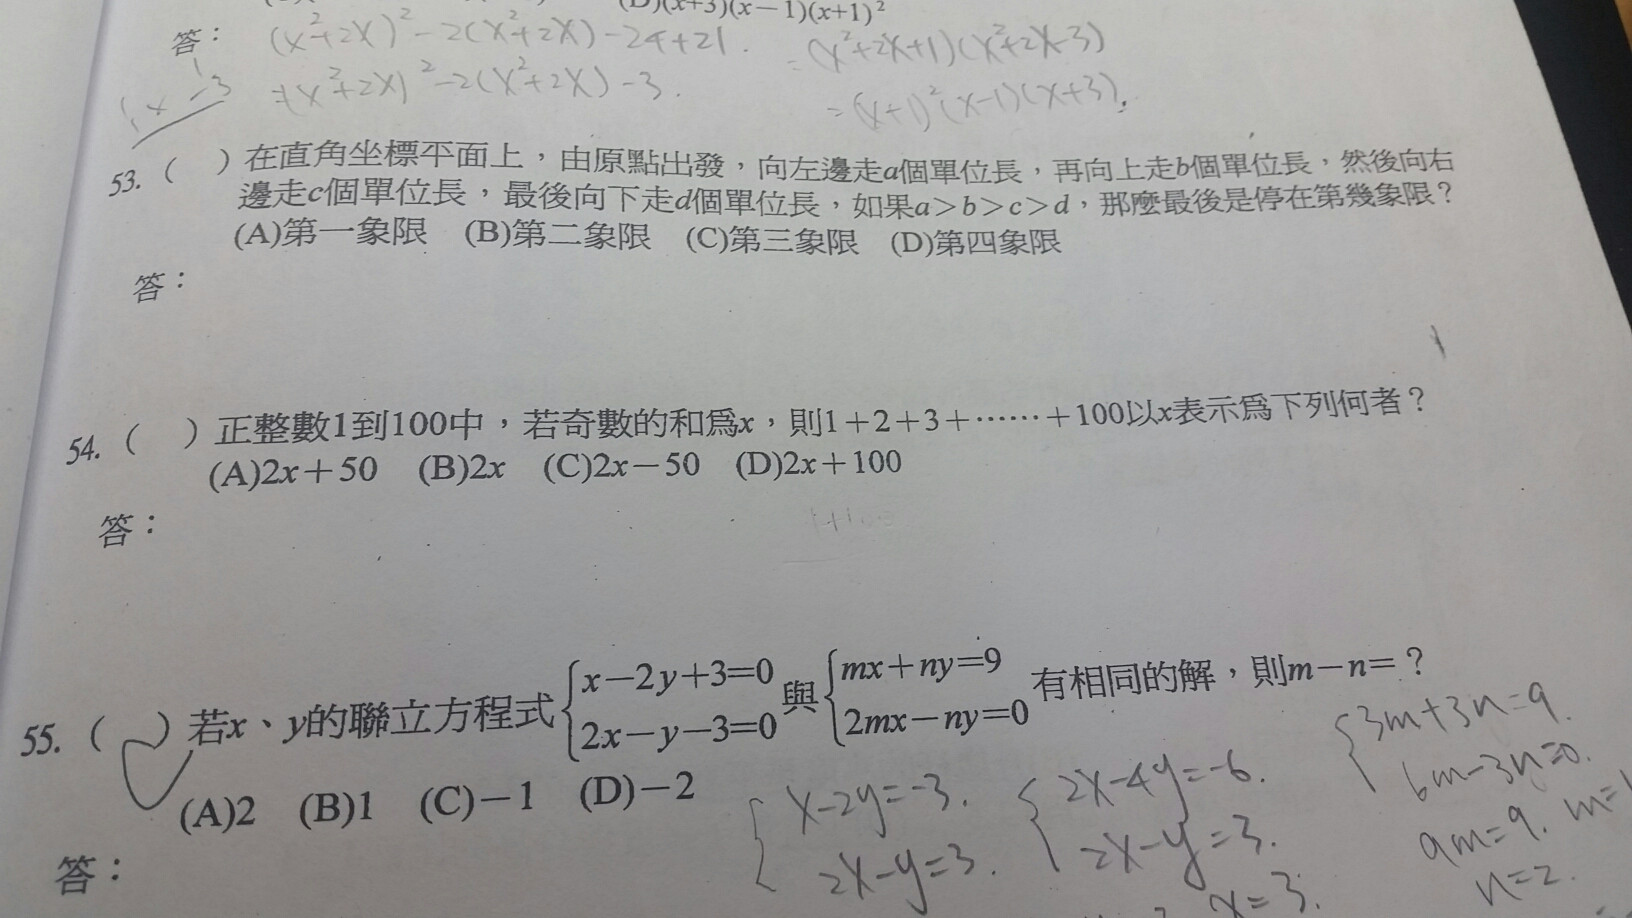 (D)(x+3)(x－1)(x+1)²
答： (x²+2x)²-2(x²+2x)-24+21. =(x²+2x+1)(x²+2x-3)
=(x²+2x)²-2(x²+2x)-3. =(x+1)²(x-1)(x+3).
53. ( ) 在直角坐標平面上，由原點出發，向左邊走a個單位長，再向上走b個單位長，然後向右
邊走c個單位長，最後向下走d個單位長，如果a＞b＞c＞d，那麼最後是停在第幾象限？
(A)第一象限 (B)第二象限 (C)第三象限 (D)第四象限
答：
54. ( ) 正整數1到100中，若奇數的和爲x，則1＋2＋3＋……＋100以x表示爲下列何者？
(A)2x＋50 (B)2x (C)2x－50 (D)2x＋100
答：
55. ( ) 若x、y的聯立方程式{x－2y＋3=0 2x－y－3=0 與{mx＋ny=9 2mx－ny=0 有相同的解，則m－n=？
(A)2 (B)1 (C)－1 (D)－2
答：
{x-2y=-3. 2x-y=3.
{2x-4y=-6. 2x-y=3.
x=3.
{3m+3n=9. 6m-3n=0.
9m=9.
n=2.